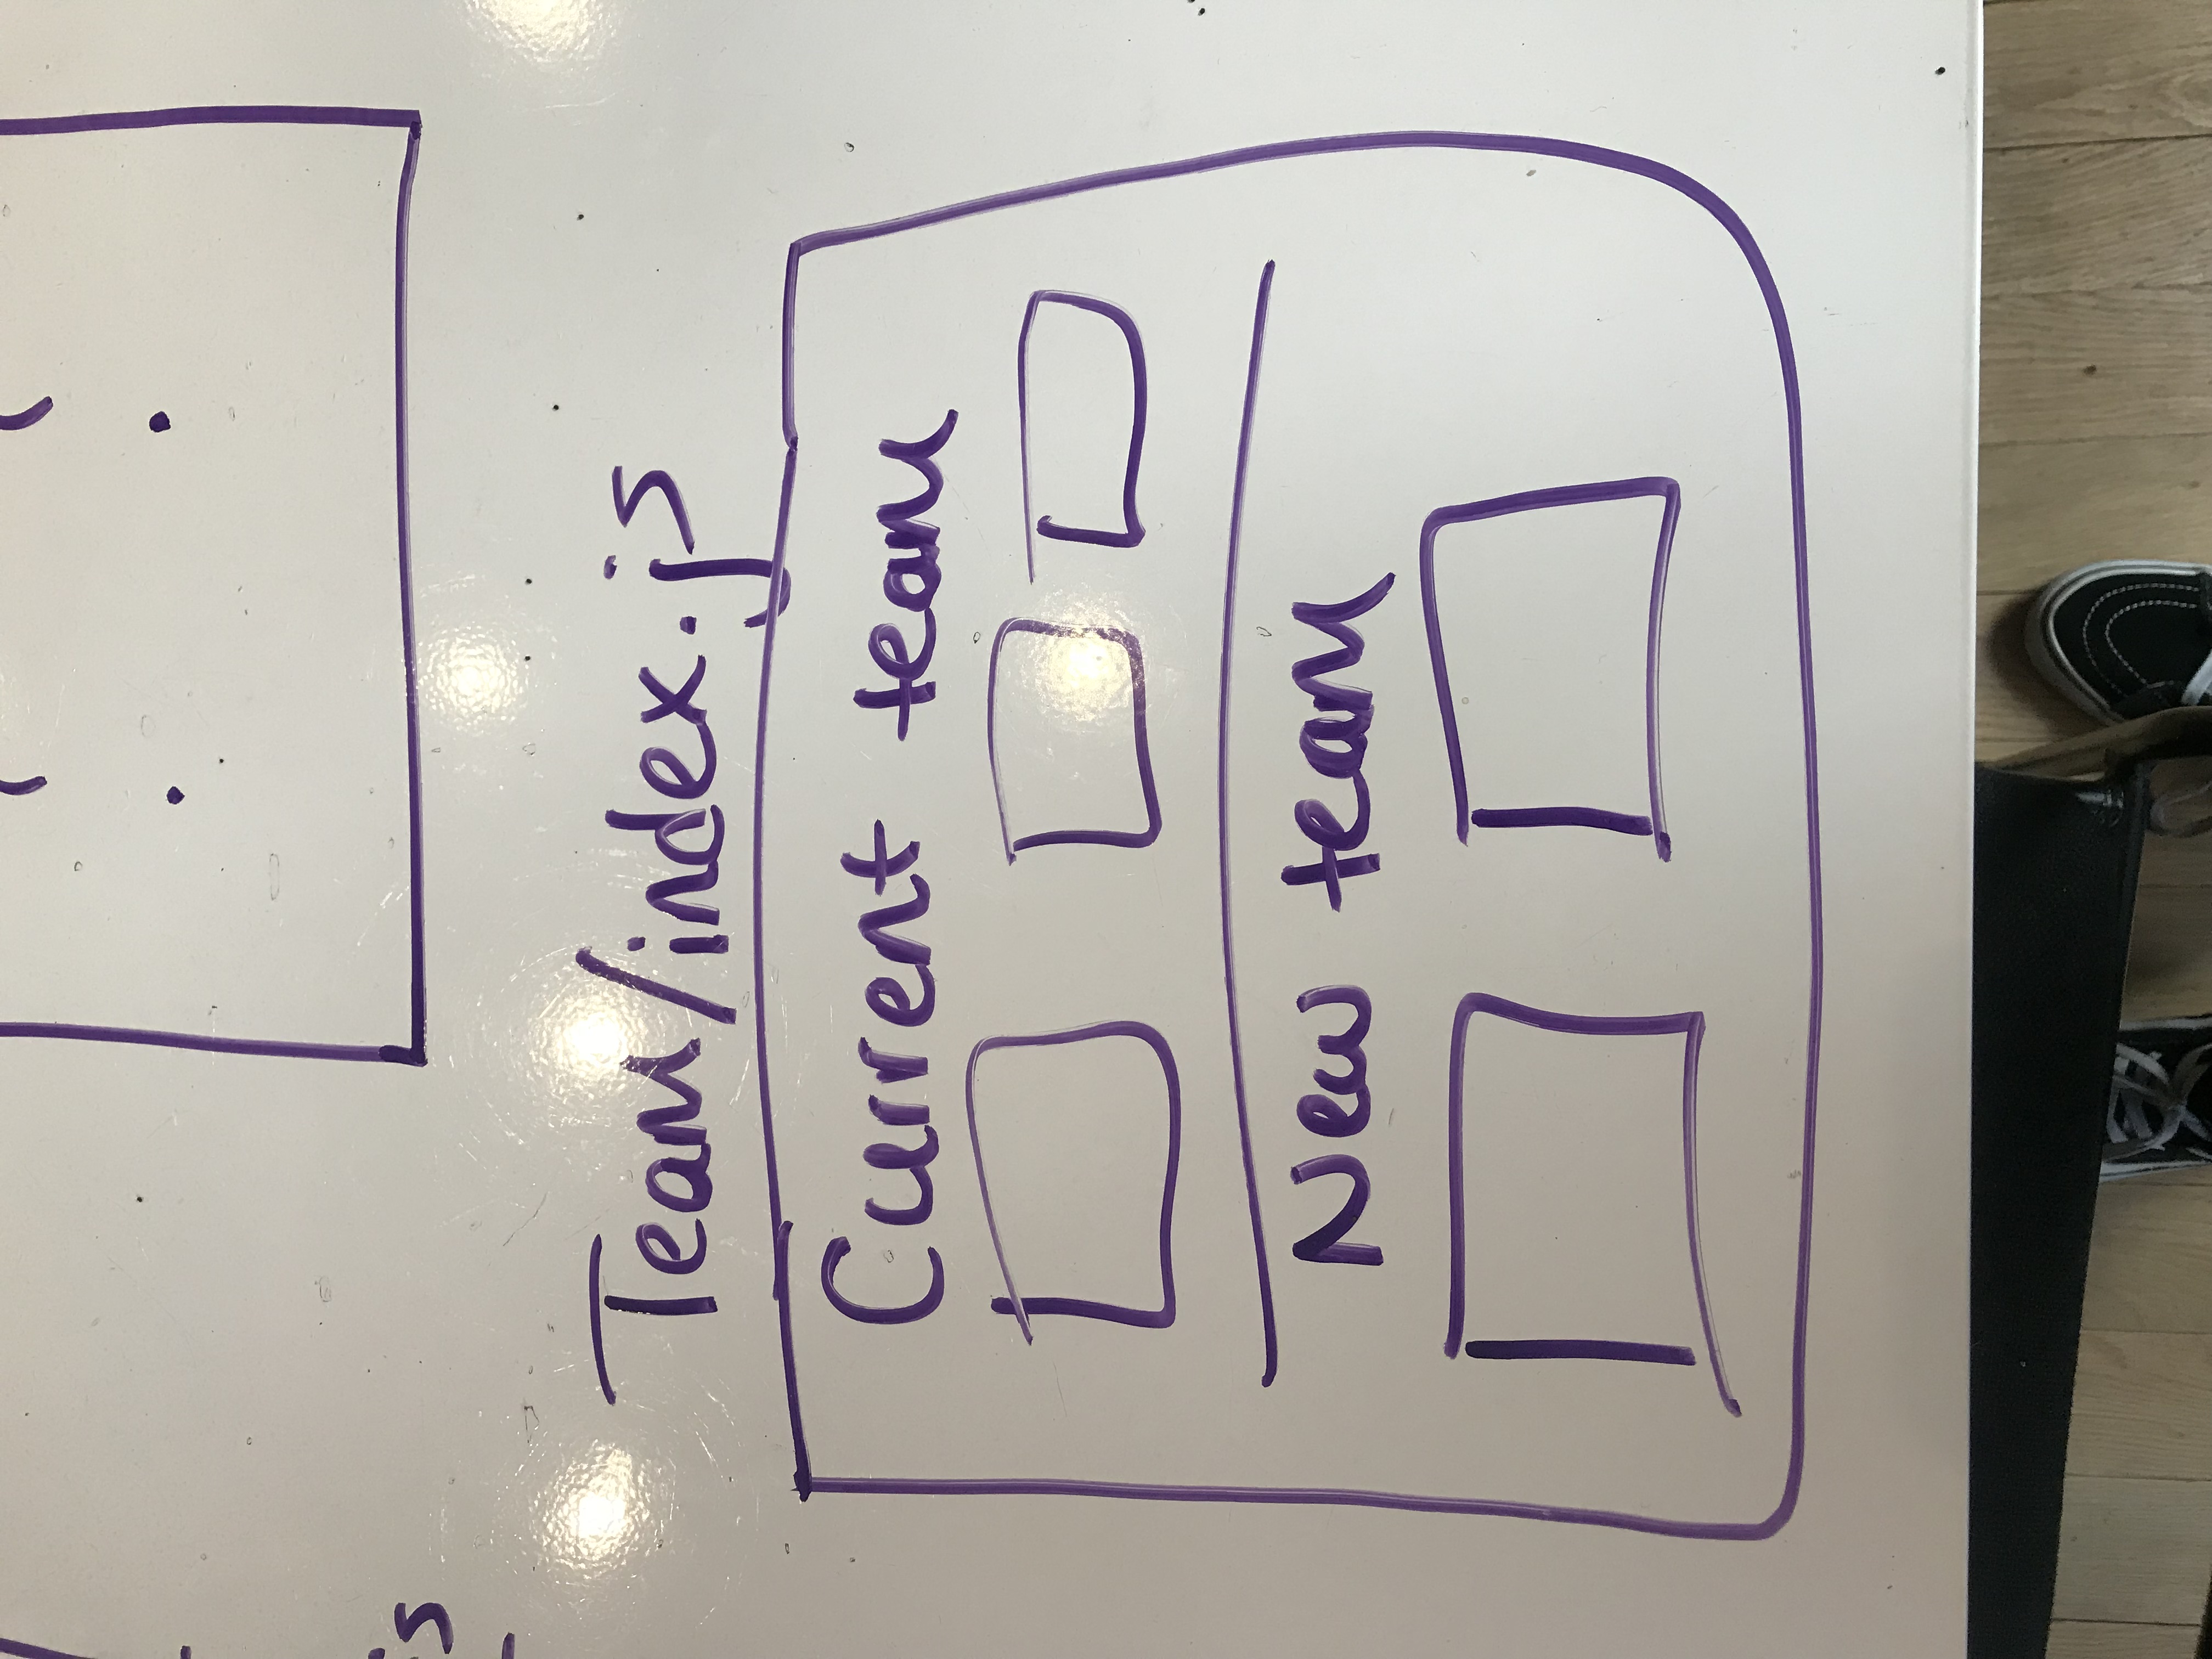 Team/index.js
Current team
New team